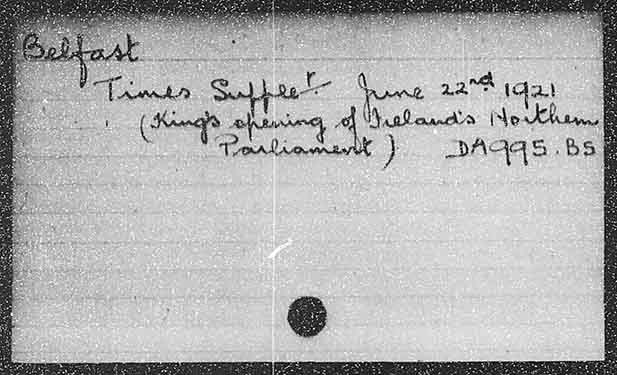 Belfast
Times Supplet June 22nd 1921
(King's opening of Ireland's Northern
Parliament) DA995.B5